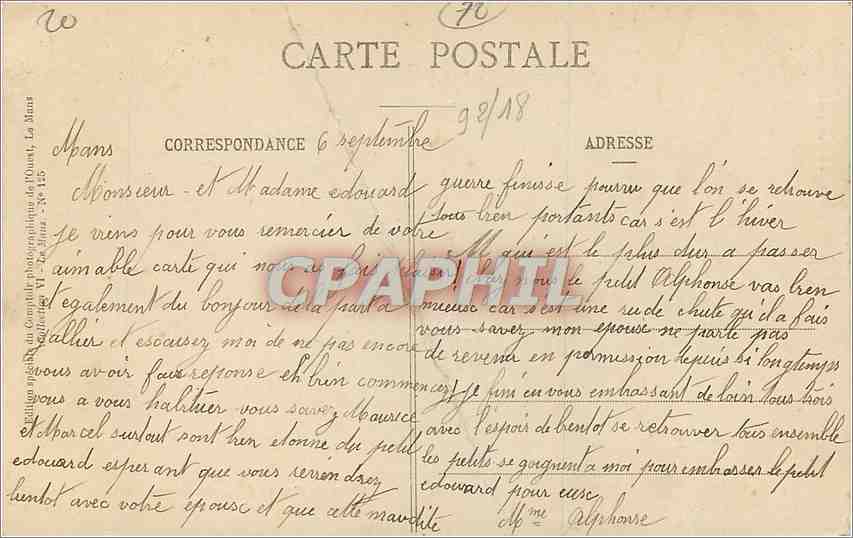 20
72
CARTE POSTALE
92/18
Mans CORRESPONDANCE 6 septembre
Monsieur - et Madame edouard
je viens pour vous remercier de votre
aimable carte qui nous
et egalement du bonjour de la part a
allier et escuisez moi de ne pas encore
vous avoir faix reponse eh bien commencez
vous a vous habituer vous savez Maurice
et Marcel surtout sont bien etonne du petit
edouard esperant que vous reviendrez
bentot avec votre epouse et que cette maudite
ADRESSE
guerre finisse pourvu que l'on se retrouve
tous bien portants car s'est l'hiver
qui est le plus dur a passer
chez nous le petit Alphonse vas bien
mieuse car s'est une rude chute qu'il a fais
vous savez mon epouse ne parle pas
de revenir en permission depuis si longtemps
je fini en vous embrassant de loin tous trois
avec l'espoir de bentot se retrouver tous ensemble
les petits se goignent a moi pour embrasser le petit
edouard pour eusc
Mme Alphonse
Edition spéciale du Comptoir photographique de l'Ouest, Le Mans
Collection VI - Le Mans. - No 125
CPAPHIL